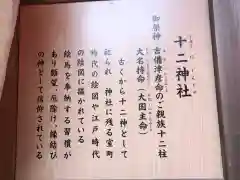 十二神社
御祭神 吉備津彦命のご親族十二柱
大名持命(大国主命)
古くから十二神として
祀られ 神社に残る室町
時代の絵図や江戸時代
の絵図に描かれている
絵馬を奉納する習慣が
あり願望、厄除け、縁結び
の神として信仰されている